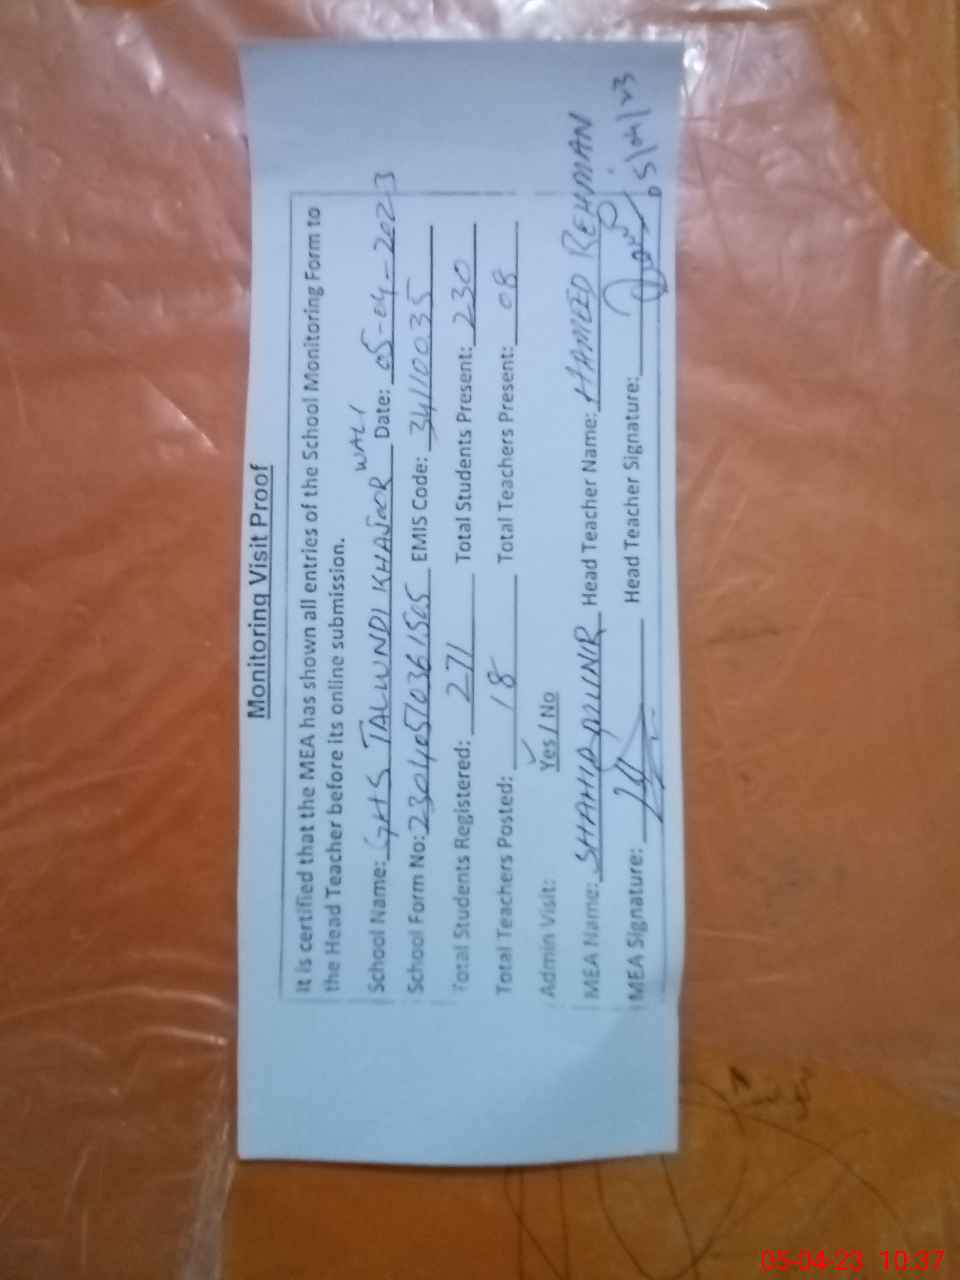 Monitoring Visit Proof
It is certified that the MEA has shown all entries of the School Monitoring Form to
the Head Teacher before its online submission.
School Name: GHS TALWNDI KHAJOOR WALI Date: 05-04-2023
School Form No: 23040510361505 EMIS Code: 34110035
Total Students Registered: 271 Total Students Present: 230
Total Teachers Posted: 18 Total Teachers Present: 08
Admin Visit: Yes / No
MEA Name: SHAHID MUNIR Head Teacher Name: HAMEED REHMAN
MEA Signature: Head Teacher Signature:
05/04/23
05-04-23 10:37